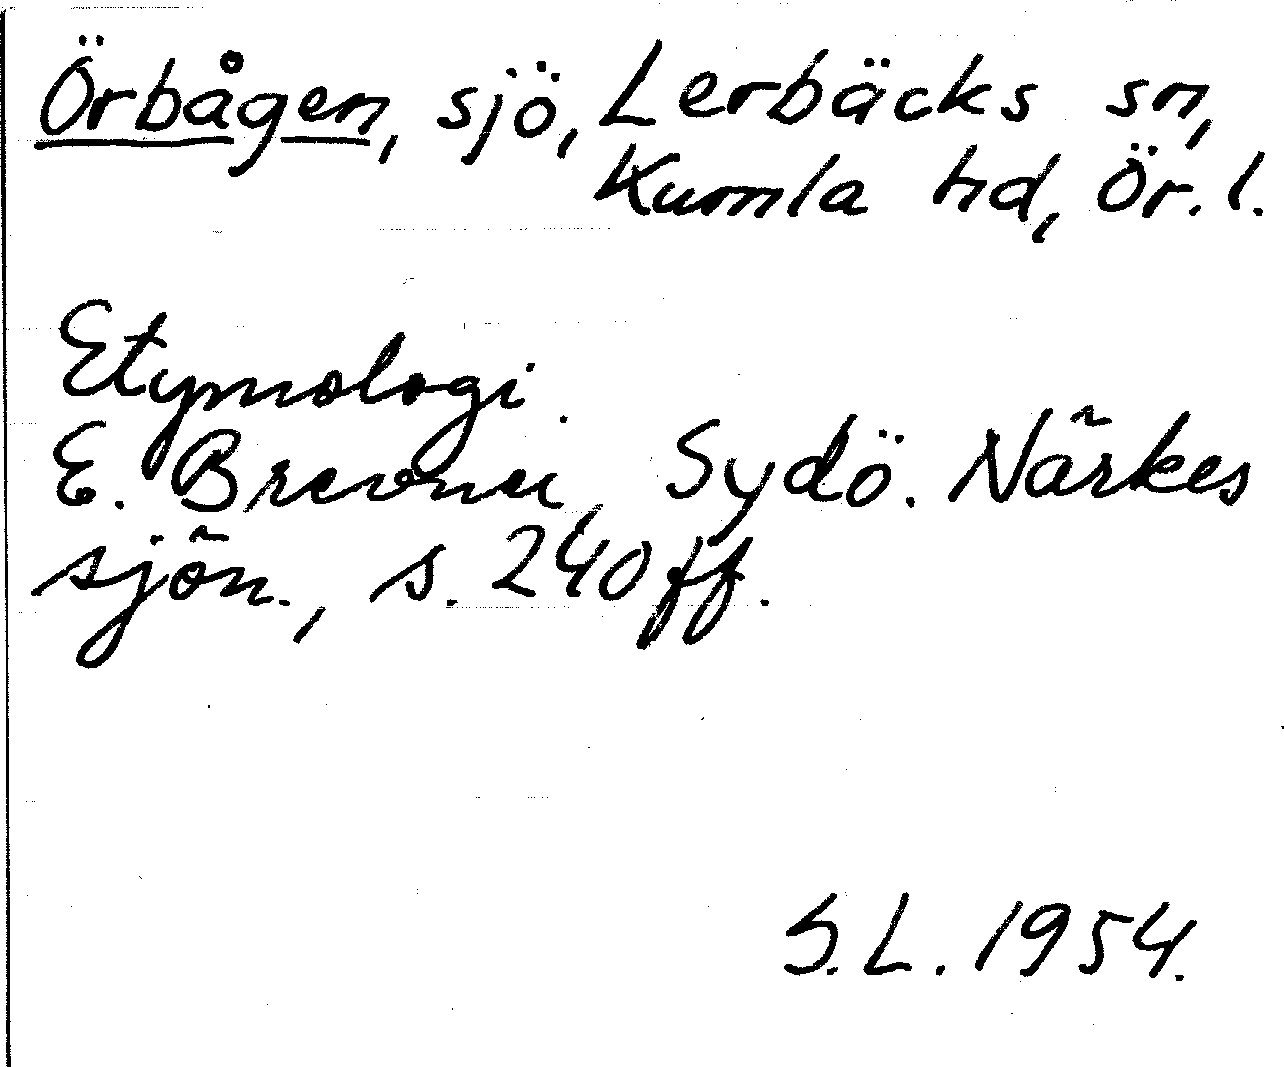 Örbågen, sjö, Lerbäcks sn,
Kumla hd, Ör. l.
Etymologi.
E. Brevner, Sydö. Närkes
sjön., s. 240 ff.
S.L. 1954.